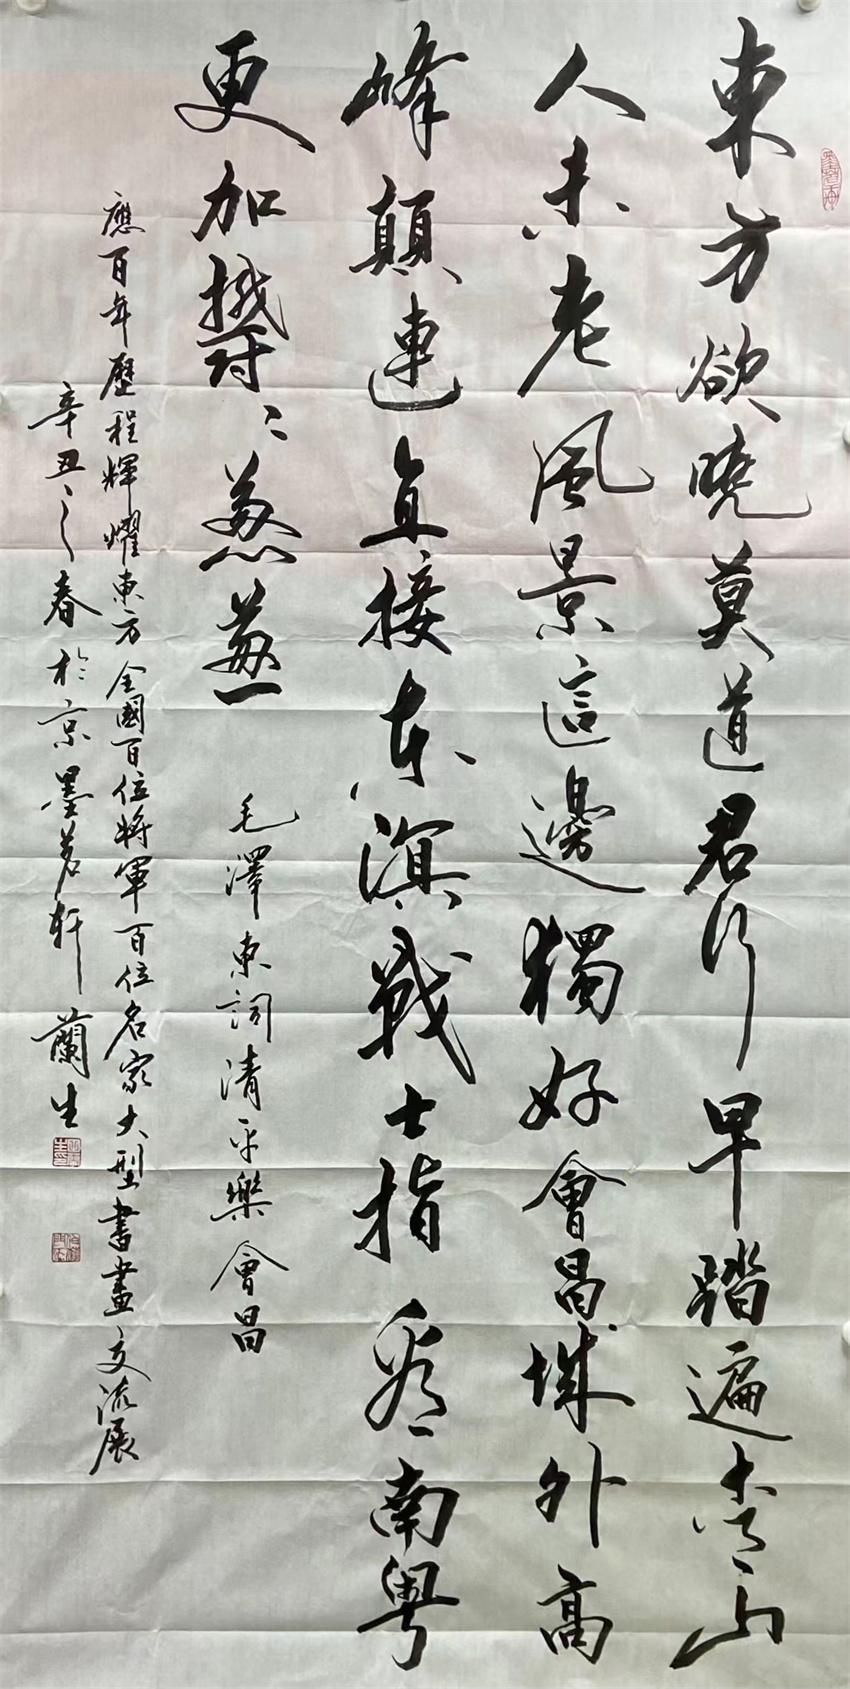 東方欲曉莫道君行早踏遍青山
人未老風景這邊獨好會昌城外高
峰顛連直接東溟戰士指看南粵
更加鬱〻葱葱
毛澤東詞清平樂會昌
應百年歷程輝耀東方全國百位將軍百位名家大型書畫交流展
辛丑之春於京墨軒蘭生